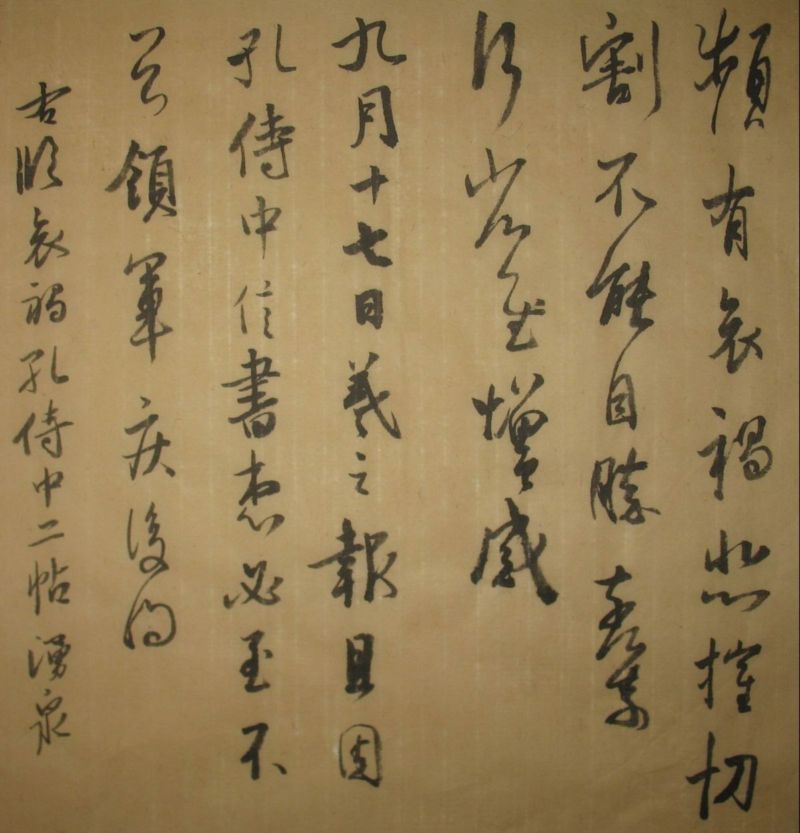 頻有哀禍悲摧切
割不能自勝奈何奈
何省慰增感
九月十七日羲之報且因
孔侍中信書想必至不
知領軍疾後問
右臨哀禍孔侍中二帖湧泉